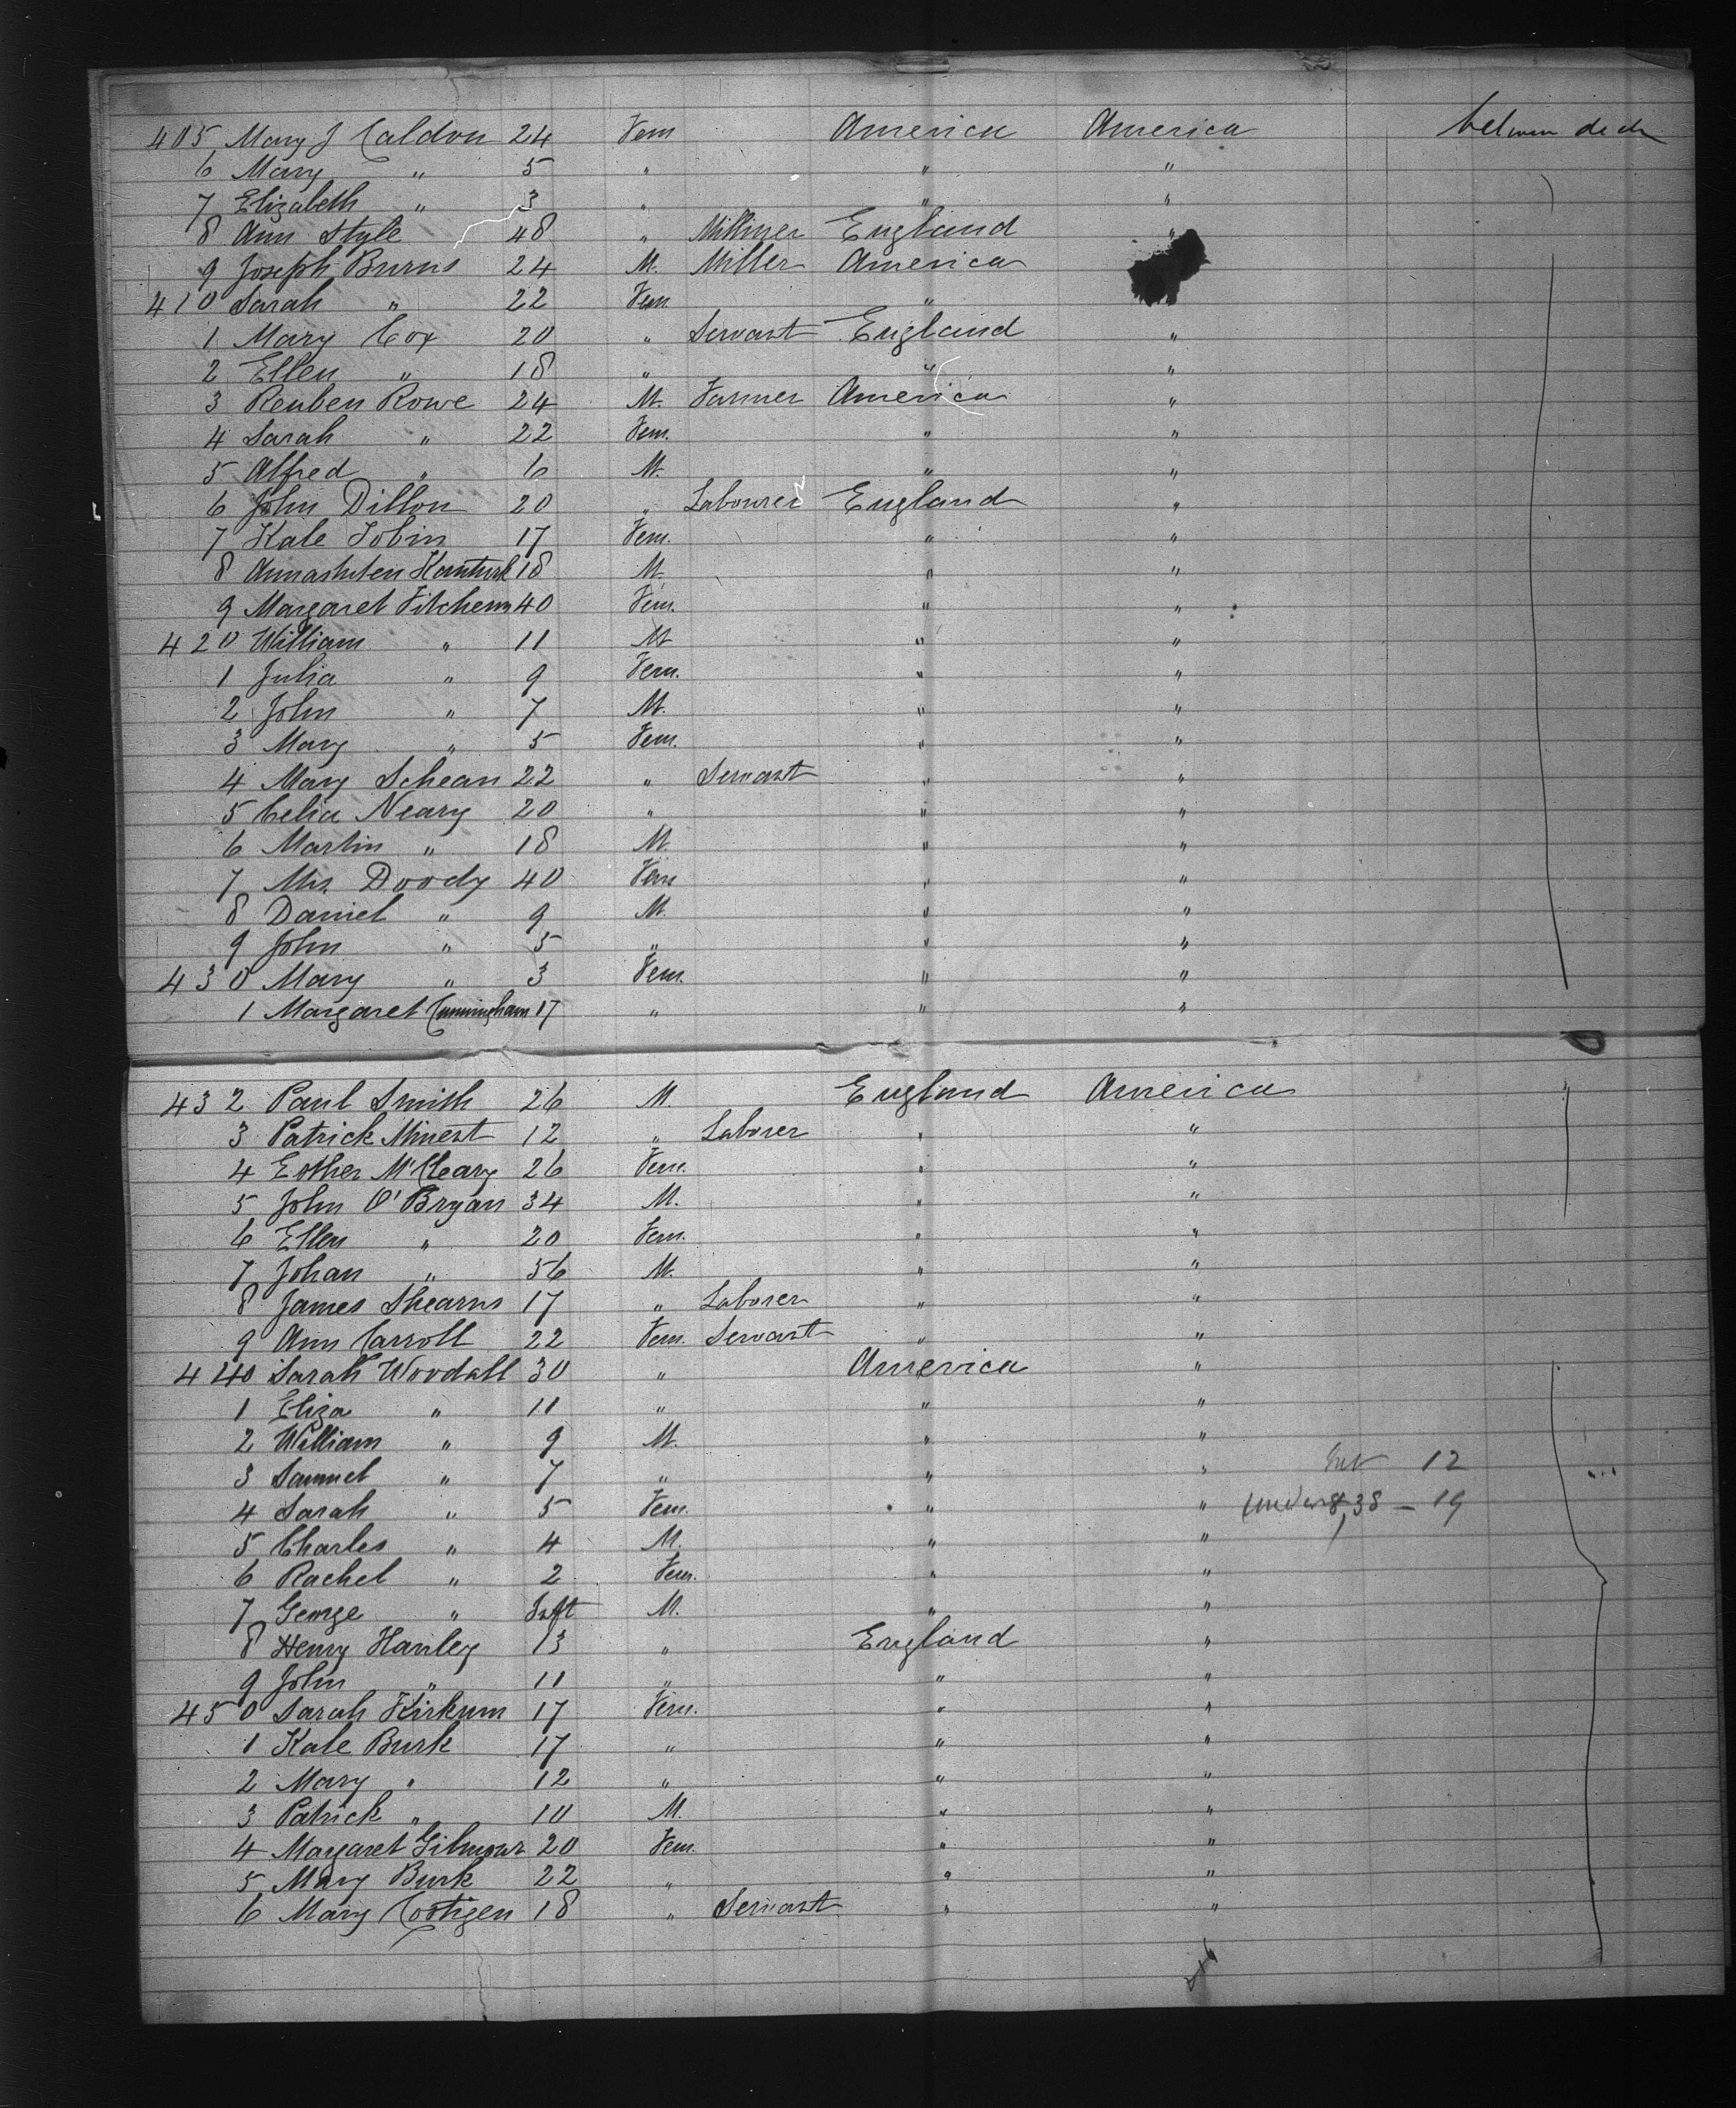 405 Mary J Caldon 24 Fem America America between deck
6 Mary " 5 " " "
7 Elizabeth " 3 " " "
8 Ann Style 48 " Milliner England "
9 Joseph Burns 24 M. Miller America
410 Sarah " 22 Fem "
1 Mary Cox 20 " Servant England "
2 Ellen " 18 " " "
3 Reuben Rowe 24 M. Farmer America "
4 Sarah " 22 Fem. " "
5 Alfred " 6 M. " "
6 John Dillon 20 " Labourer England "
7 Kate Tobin 17 Fem. " "
8 18 M. " "
9 Margaret 40 Fem. " "
420 William " 11 M " "
1 Julia " 9 Fem. " "
2 John " 7 M. " "
3 Mary " 5 Fem. " "
4 Mary Schean 22 " Servant " "
5 Celia Neary 20 " " "
6 Martin " 18 M. " "
7 Mrs. Doody 40 Fem " "
8 Daniel " 9 M. " "
9 John " 5 " " "
430 Mary " 3 Fem. " "
1 Margaret Cunningham 17 " " "
432 Paul Smith 26 M. England America
3 Patrick Minest 12 " Laborer " "
4 Esther McCleary 26 Fem. " "
5 John O'Bryan 34 M. " "
6 Ellen " 20 Fem. " "
7 Johan " 56 M. " "
8 James Shearns 17 " Laborer " "
9 Ann Carroll 22 Fem. Servant " "
440 Sarah Woodall 30 " America "
1 Eliza " 11 " " "
2 William " 9 M. " "
3 Samuel " 7 " " " 12
4 Sarah " 5 Fem. " " under 8, 38 - 19
5 Charles " 4 M. " "
6 Rachel " 2 Fem. " "
7 George " Inft M. " "
8 Henry Hanley 13 " England "
9 John " 11 " " "
450 Sarah Kirkum 17 Fem. " "
1 Kate Burk 17 " " "
2 Mary " 12 " " "
3 Patrick " 10 M. " "
4 Margaret Gilmour 20 Fem. " "
5 Mary Burk 22 " " "
6 Mary Costigen 18 " Servant " "